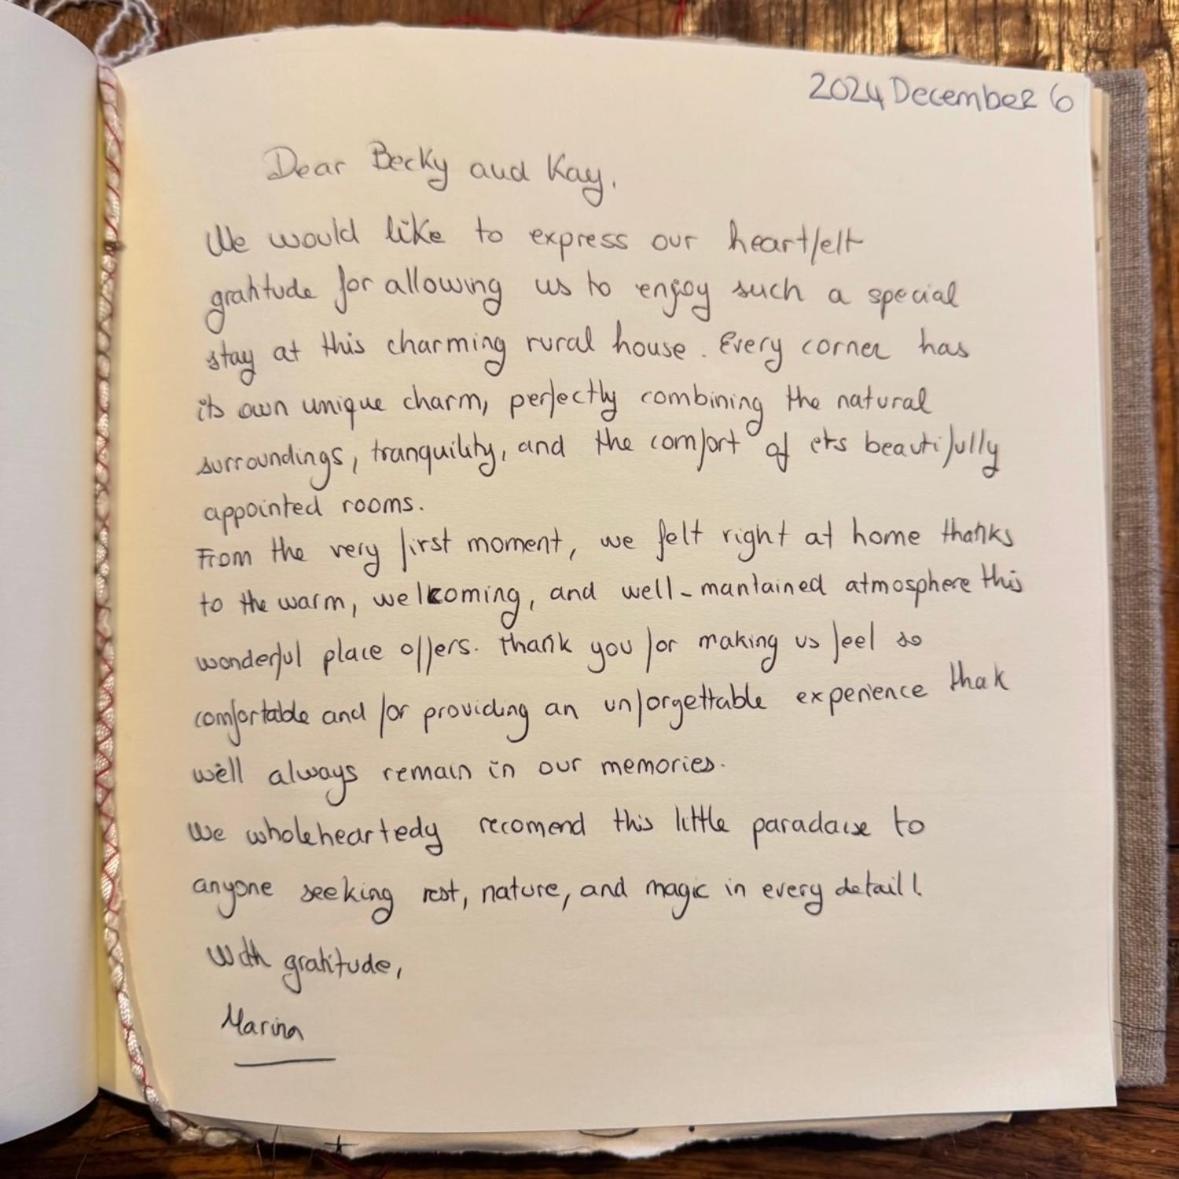 2024 December 6
Dear Becky and Kay,
We would like to express our heartfelt
gratitude for allowing us to enjoy such a special
stay at this charming rural house. Every corner has
its own unique charm, perfectly combining the natural
surroundings, tranquility, and the comfort of its beautifully
appointed rooms.
From the very first moment, we felt right at home thanks
to the warm, welcoming, and well-mantained atmosphere this
wonderful place offers. Thank you for making us feel so
comfortable and for providing an unforgettable experience that
we'll always remain in our memories.
We wholeheartedy recomend this little paradaise to
anyone seeking rest, nature, and magic in every detail!
With gratitude,
Marina